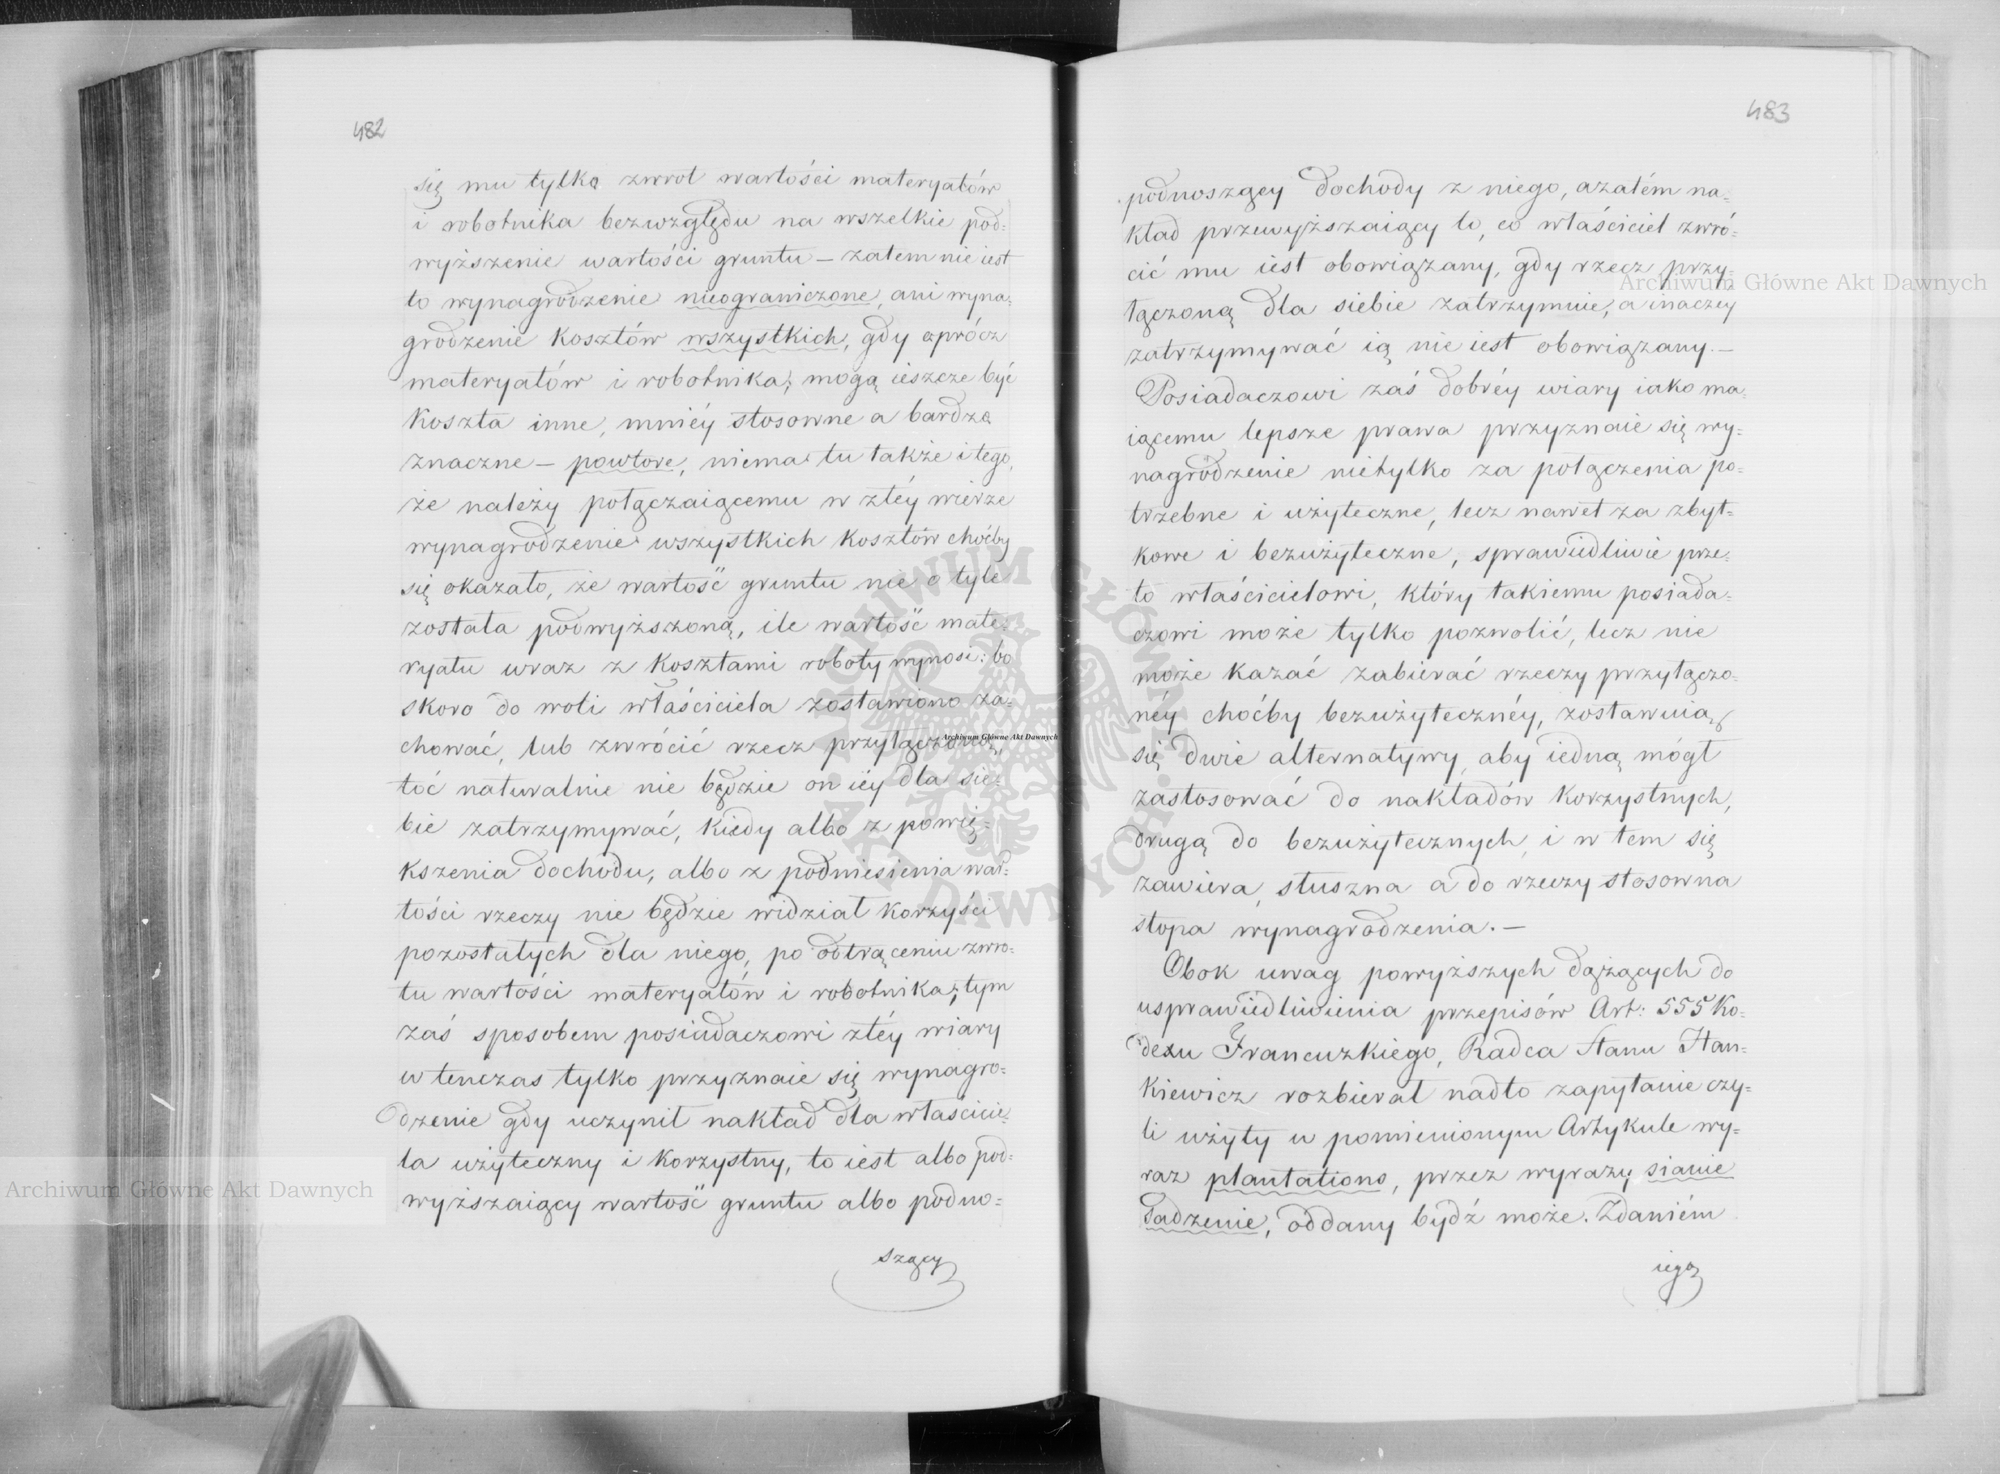 482
się mu tylko zwrot wartości materyałów
i robotnika bezwzględu na wszelkie pod=
wyższenie wartości gruntu — zatem nie iest
to wynagrodzenie nieograniczone, ani wyna=
grodzenie kosztów wszystkich, gdy oprócz
materyałów i robotnika, mogą ieszcze być
koszta inne, mniéy stosowne a bardzo
znaczne — powtore, niema tu także i tego,
że należy połączaiącemu w złéy wierze
wynagrodzenie wszystkich kosztów choćby
się okazało, że wartość gruntu nie o tyle
została podwyższoną, ile wartość mate=
ryału wraz z kosztami roboty wynosi: bo
skoro do woli właściciela zostawiono za=
chować, lub zwrócić rzecz przyłączoną,
toć naturalnie nie będzie on iéy dla sie=
bie zatrzymywać, kiedy albo z powię=
kszenia dochodu, albo z podniesienia war=
tości rzeczy nie będzie widział korzyści
pozostałych dla niego, po odtrąceniu zwro=
tu wartości materyałów i robotnika; tym
zaś sposobem posiadaczowi złéy wiary
w tenczas tylko przyznaie się wynagro=
dzenie gdy uczynił nakład dla właścicie=
la użyteczny i korzystny, to iest albo pod=
wyższaiący wartość gruntu albo podno=
szący
483
podnoszący dochody z niego, azatém na=
kład przewyższaiący to, co właściciel zwró=
cić mu iest obowiązany, gdy rzecz przy=
łączoną dla siebie zatrzymuie, a inaczey
zatrzymywać ią nie iest obowiązany. —
Posiadaczowi zaś dobréy wiary iako ma=
iącemu lepsze prawa przyznaie się wy=
nagrodzenie nietylko za połączenia po=
trzebne i użyteczne, lecz nawet za zbyt=
kowe i bezużyteczne, sprawiedliwie prze=
to właścicielowi, który takiemu posiada=
czowi może tylko pozwolić, lecz nie
może kazać zabierać rzeczy przyłączo=
néy choćby bezużytecznéy, zostawuią
się dwie alternatywy, aby iedną mógł
zastosować do nakładów korzystnych,
drugą do bezużytecznych, i w tem się
zawiera słuszna a do rzeczy stosowna
stopa wynagrodzenia. —
Obok uwag powyższych dążących do
usprawiedliwienia przepisów Art: 555 Ko=
dexu Francuzkiego, Radca Stanu Stan=
kiewicz rozbierał nadto zapytanie czy=
li użyty w pomienionym Artykule wy=
raz plantations, przez wyrazy sianie
sadzenie, oddany bydź może. Zdaniém
iego
Archiwum Główne Akt Dawnych
Archiwum Główne Akt Dawnych
Archiwum Główne Akt Dawnych
ARCHIWUM GŁÓWNE AKT DAWNYCH